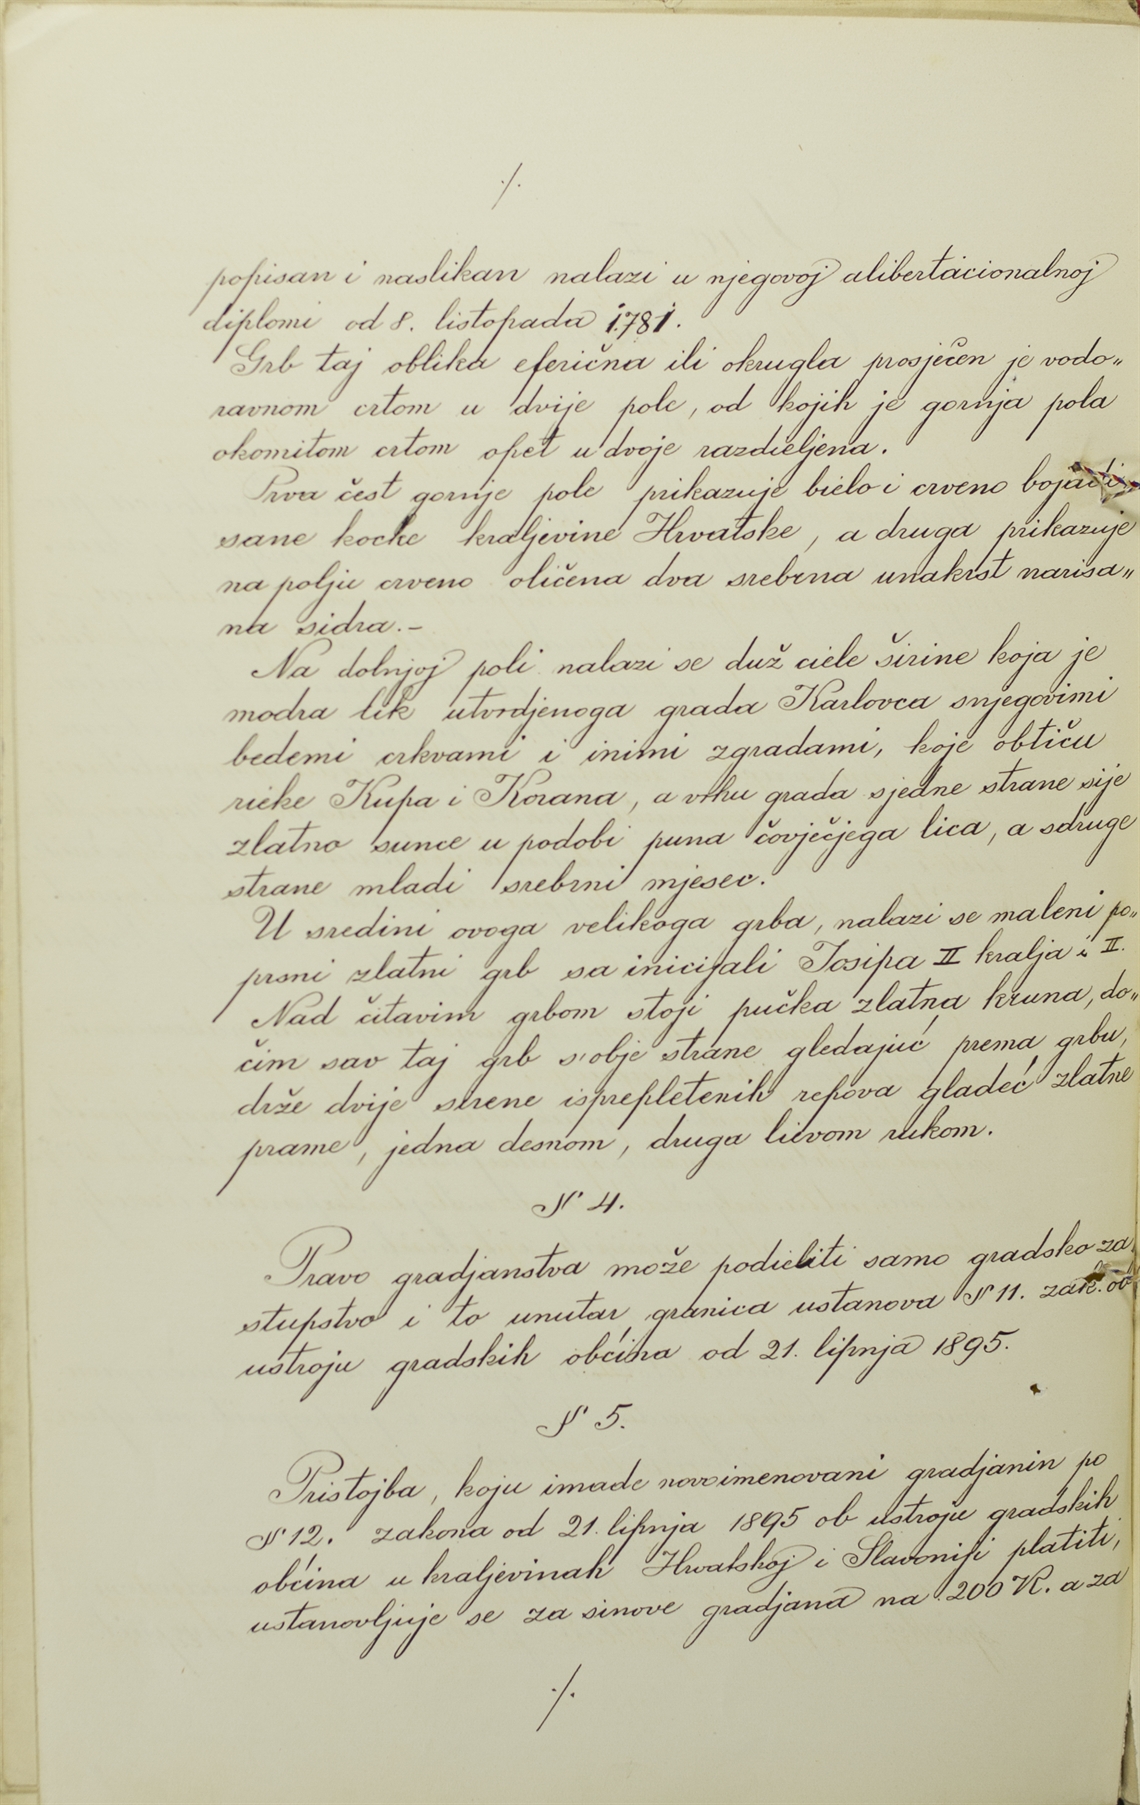 ./.
popisan i naslikan nalazi u njegovoj alibertacionalnoj
diplomi od 8. listopada 1781.
Grb taj oblika eferična ili okrugla prosječen je vodo„
ravnom crtom u dvije pole, od kojih je gornja pola
okomitom crtom opet u dvoje razdieljena.
Prva čest gornje pole prikazuje bielo i crveno bojadi„
sane kocke kraljevine Hrvatske, a druga prikazuje
na polju crveno oličena dva srebrna unakrst narisa„
na sidra.–
Na dolnjoj poli nalazi se duž ciele širine koja je
modra lik utvrdjenoga grada Karlovca snjegovimi
bedemi crkvami i inimi zgradami, koje obtiču
rieke Kupa i Korana, a vrhu grada sjedne strane sije
zlatno sunce u podobi puna čovječjega lica, a sdruge
strane mladi srebrni mjesec.
U sredini ovoga velikoga grba, nalazi se maleni po„
prsni zlatni grb sa inicijali Josipa II kralja i II.
Nad čitavim grbom stoji pučka zlatna kruna, do„
čim sav taj grb s'obje strane gledajuć prema grbu,
drže dvije sirene isprepletenih repova gladeć zlatne
prame, jedna desnom, druga lievom rukom.
§ 4.
Pravo gradjanstva može podieliti samo gradsko za
stupstvo i to unutar granica ustanova § 11. zak. ob
ustroju gradskih obćina od 21. lipnja 1895.
§ 5.
Pristojba, koju imade novoimenovani gradjanin po
§ 12. zakona od 21. lipnja 1895 ob ustroju gradskih
obćina u kraljevinah Hrvatskoj i Slavoniji platiti,
ustanovljuje se za sinove gradjana na 200 K. a za
./.